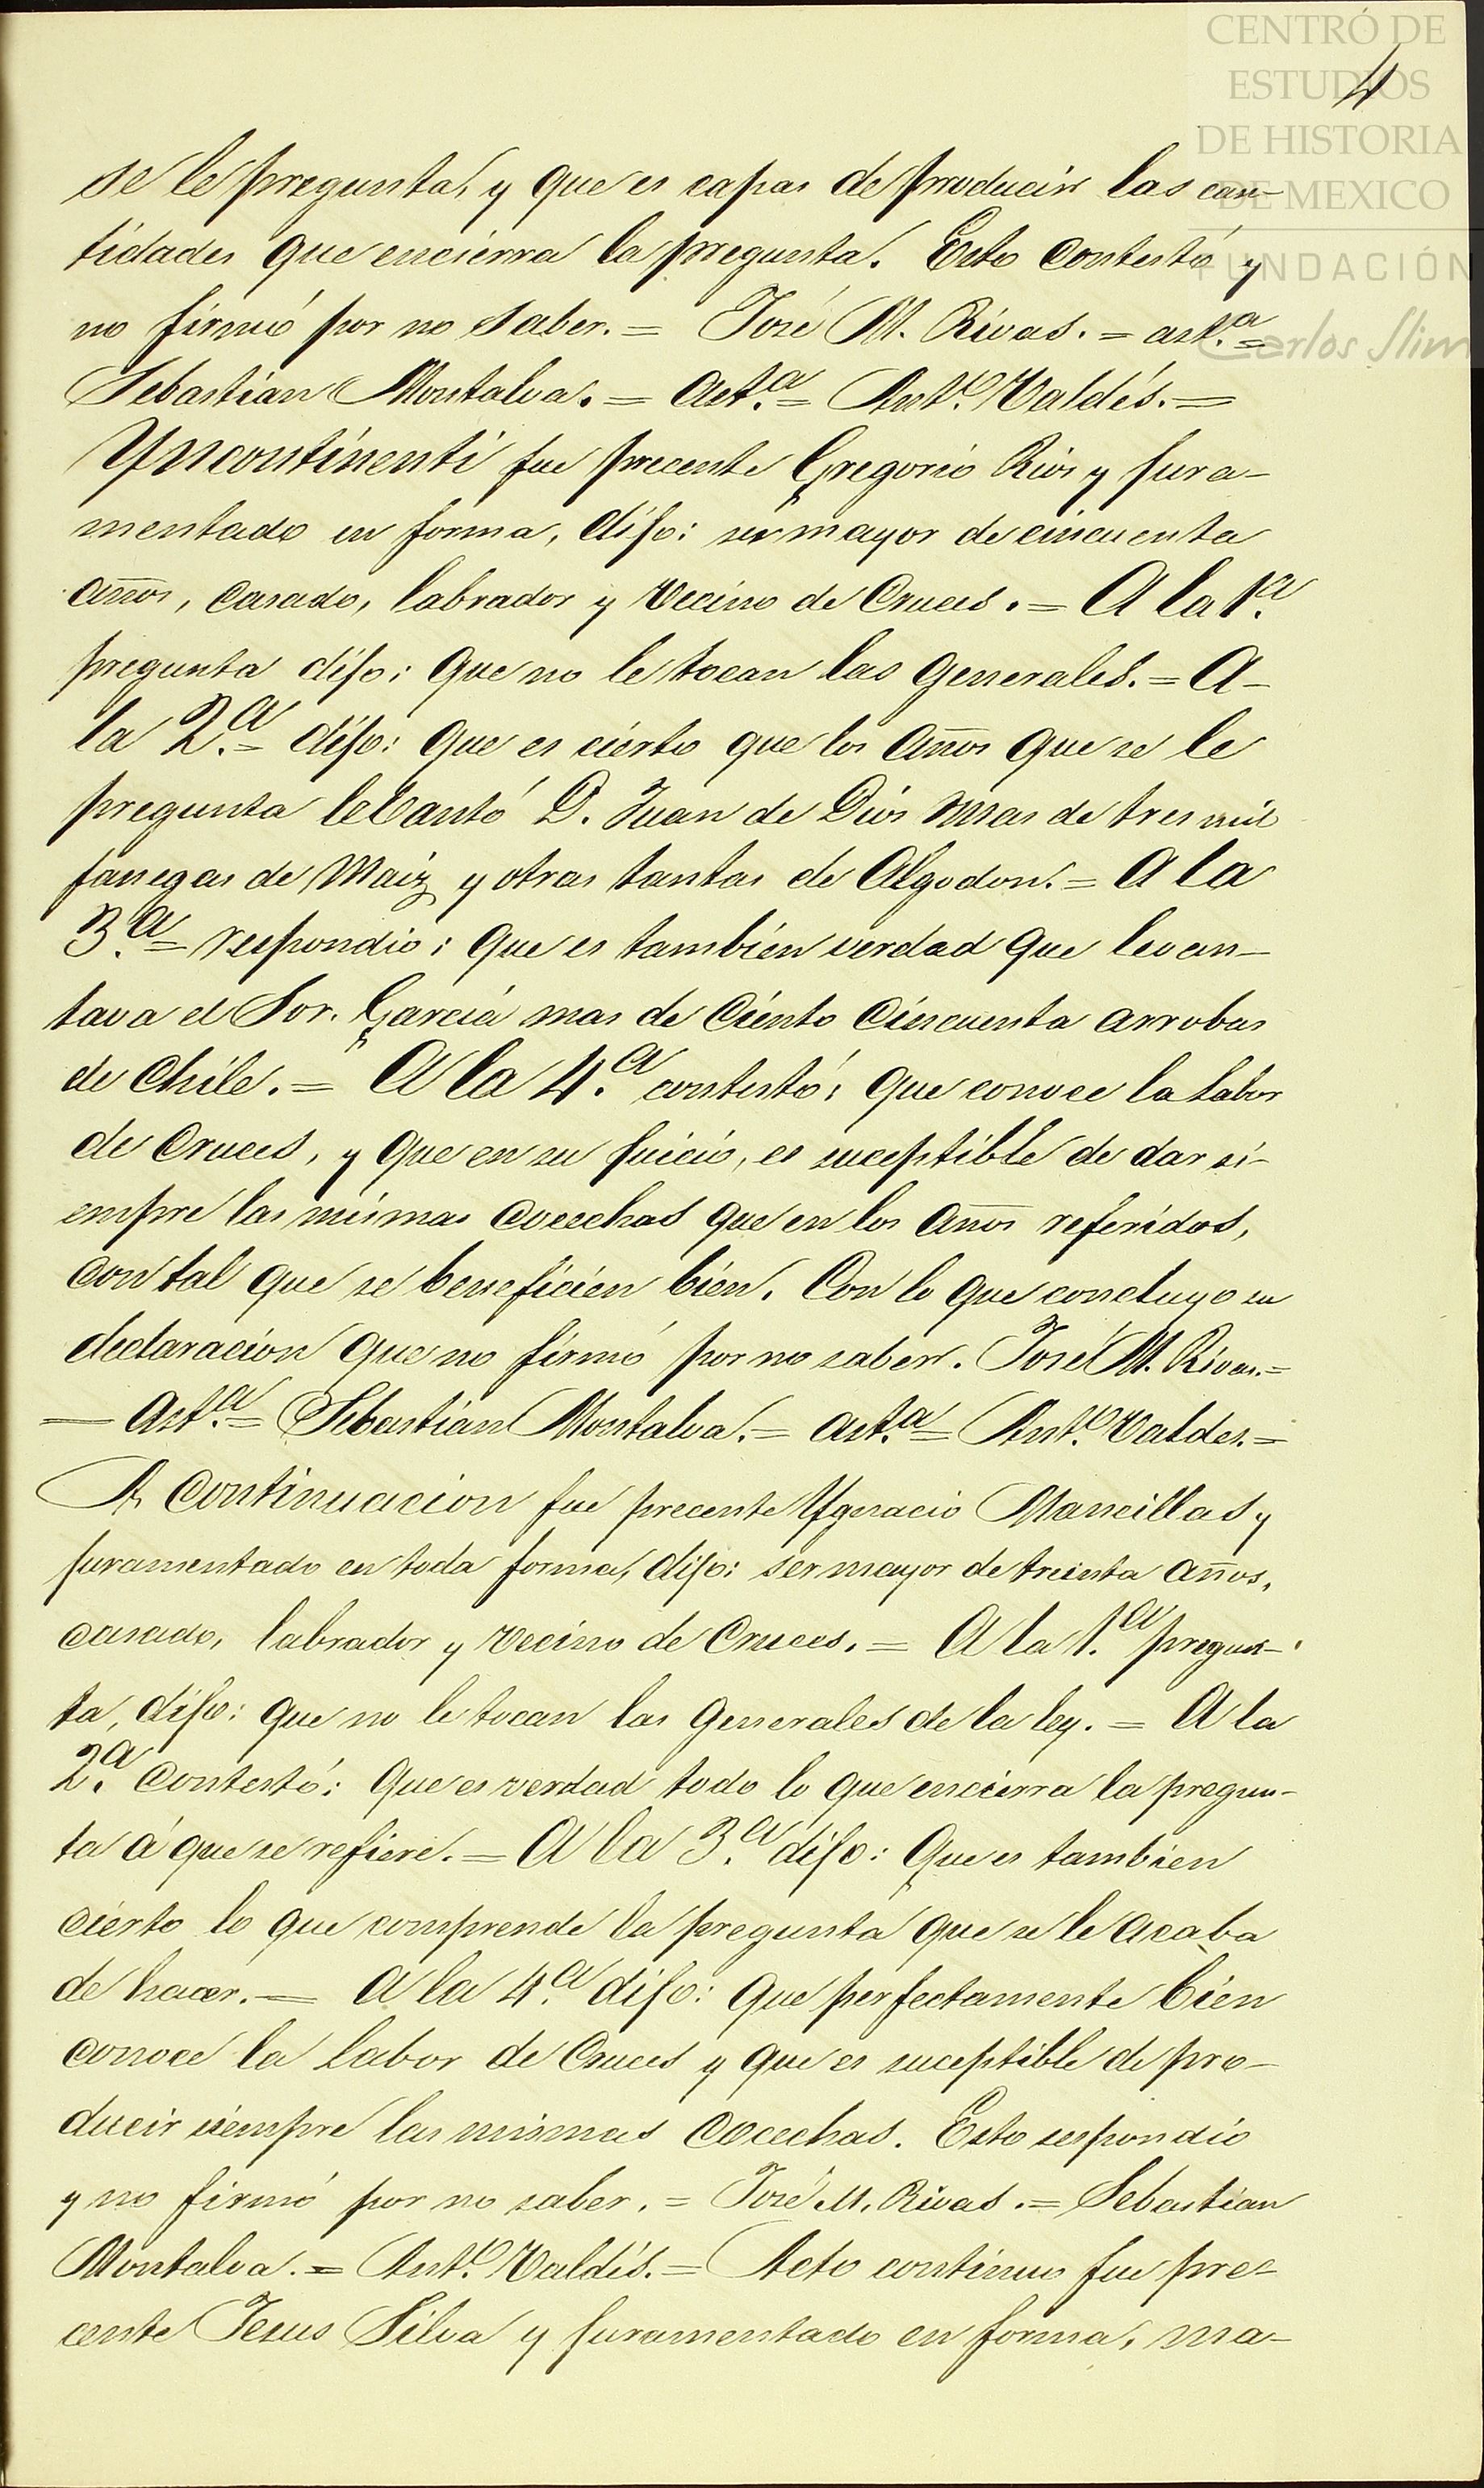 CENTRO DE
ESTUDIOS
DE HISTORIA
DE MEXICO
FUNDACIÓN
Carlos Slim
4
se le pregunta, y que es capas de producir las can-
tidades que encierra la pregunta. Esto contestó y
no firmó por no saber. = José M. Rivas. = ast.a =
Sebastian Montalva. = Ast.a = Ant.o Valdés. =
Yncontinenti fue precente Gregorio Rios y jura-
mentado en forma, dijo: ser mayor de cincuenta
años, casado, labrador y vecino de Cruces. = A la 1.a
pregunta dijo: que no le tocan las generales. = A-
la 2.a = dijo: que es cierto que los años que se le
pregunta lebantó D. Juan de Dios mas de tres mil
fanegas de Maiz y otras tantas de Algodon. = A la
3.a = respondio: que es tambien verdad que levan-
tava el Sor. García mas de ciento cincuenta arrobas
de Chile. = A la 4.a contestó: que conoce la labor
de Cruces, y que en su juicio, es suceptible de dar si-
empre las mismas cocechas que en los años referidos,
con tal que se beneficien bien. Con lo que concluyo su
declaracion que no firmó por no saber. José M. Rivas. =
— Ast.a = Sebastian Montalva. = ast.a = Ant.o Valdes. =
A continuacion fue precente Ygnacio Mancillas y
juramentado en toda forma, dijo: ser mayor de treinta años,
casado, labrador y vecino de Cruces. = A la 1.a pregun-
ta, dijo: que no le tocan las generales de la ley. = A la
2.a contestó: que es verdad todo lo que encierra la pregun-
ta á que se refiere. = A la 3.a dijo: Que es tambien
cierto lo que comprende la pregunta que se le acaba
de hacer. = A la 4.a dijo: que perfectamente bien
conoce la labor de Cruces y que es suceptible de pro-
ducir siempre las mismas cocechas. Esto respondio
y no firmó por no saber. = José M. Rivas. = Sebastian
Montalva. = Ant.o Valdés. = Acto continuo fue pre-
cente Jesus Silva y juramentado en forma, ma-